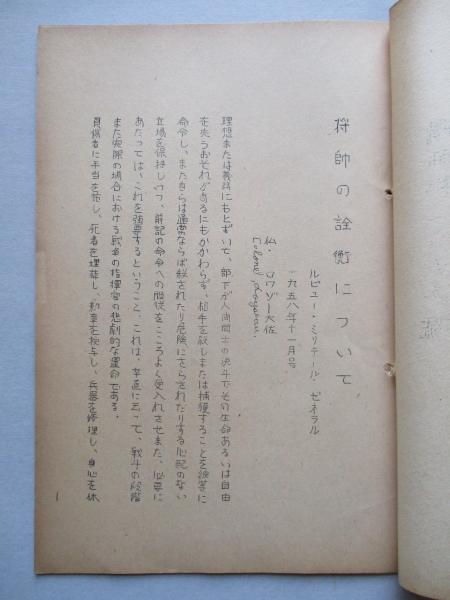 将帥の詮衡について
ルビュー・ミリテール・ゼネラル
一九五八年十一月号.
仏・ロワゾー大佐
Colonel Loyseau.
理想または義務にもとずいて、部下が人間同士の決斗でその生命あるいは自由
を失うおそれがあるにもかかわらず、相手を殺しまたは捕獲することを彼等に
命令し、また自らは通常ならば殺されたり危険にさらされたりする心配のない
立場を保持しつつ、前記の命令への服従をこころよく受入れさせまた、必要に
あたっては、これを強要するということ、これは、卒直に云って、戦斗の段階
また実際の場合における戦争の指揮官の悲劇的な運命である.
負傷者に手当を施し、死者を埋葬し、勲章を授与し、兵器を修理し、身心を休
1